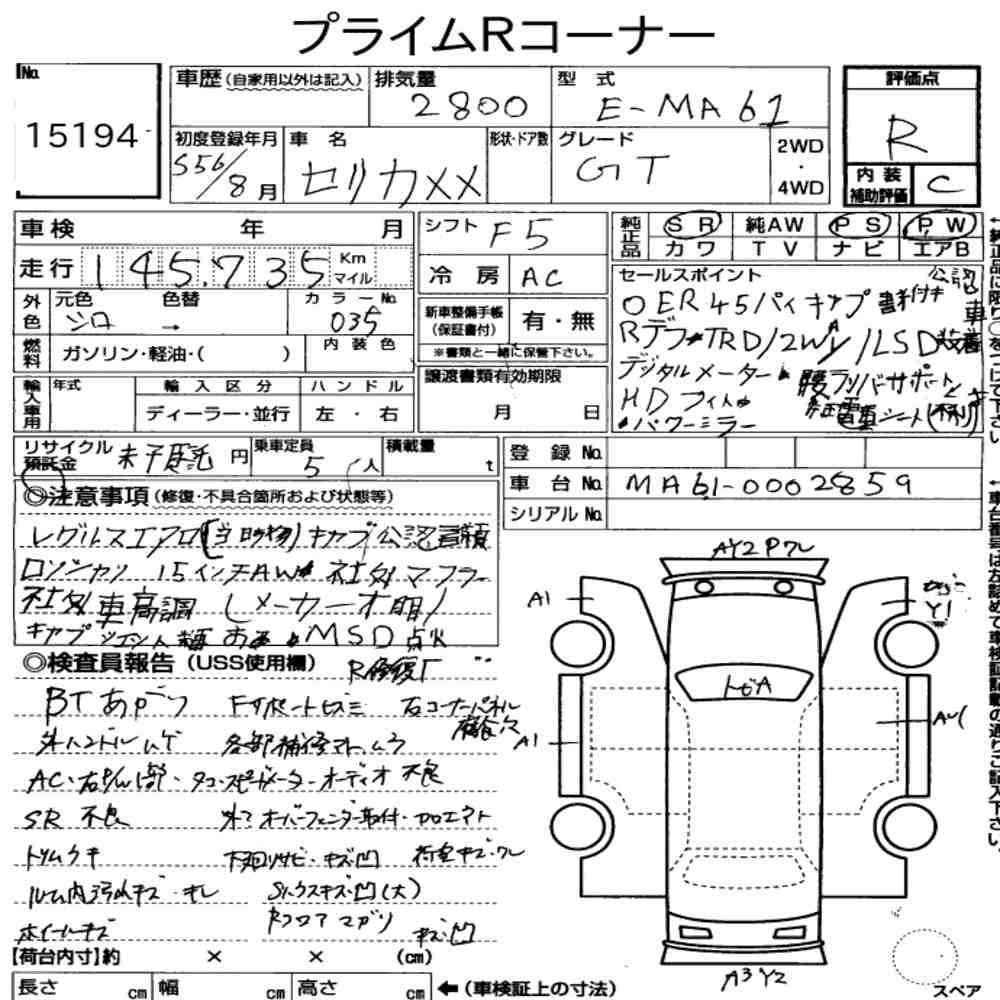 プライムRコーナー
No. 15194
車歴 (自家用以外は記入)
排気量 2800
型式 E-MA61
評価点 R
初度登録年月 S56/8月
車名 セリカXX
形状・ドア数
グレード GT
2WD・4WD
内装補助評価 C
車検 年 月
シフト F5
純正品 SR 純AW PS PW
カワ TV ナビ エアB
走行 145,735 Km マイル
冷房 AC
セールスポイント 公認車
OER45パイキャブ
Rデフ TRD/2Way/LSD装着
デジタルメーター 腰フリバーサポート
HDフォト
パワーミラー
外色 元色 シロ 色替 →
カラーNo. 035
新車整備手帳(保証書付) 有・無
※書類と一緒に保管下さい。
燃料 ガソリン・軽油・( )
内装色
輸入車用 年式 輸入区分 ハンドル
ディーラー・並行 左・右
譲渡書類有効期限
月 日
リサイクル預託金 未予託 円
乗車定員 5人
積載量 t
登録No.
車台No. MA61-0002859
シリアルNo.
←純正品に限り○をつけて下さい
←車台番号は左詰めで車検証記載の通りご記入下さい。
◎注意事項 (修復・不具合箇所および状態等)
レグルスエアロ(当時物) キャブ公認書類
ロンシャン 15インチAW 社外マフラー
社外車高調(メーカー不明)
キャブ MSD点火
◎検査員報告 (USS使用欄)
R修復
BTあがり Fサポートヒズミ 右コーナーパネル腐食穴
外ハンドルハゲ 各部補修
AC・右P/W 一部・タコ・スピードメーター・オーディオ不良
SR不良 オーバーフェンダー取付
トリムウキ 下廻りサビ・キズ凹 荷室キズ・ワレ
ルーム内汚れキズ・キレ S/シックスキズ・凹(大)
ホイールキズ Rフロアマガリ キズ凹
AY2 Pワレ
A1
Y1
トビA
A1
A3Y2
スペア
【荷台内寸】約 × × (cm)
長さ cm 幅 cm 高さ cm ←(車検証上の寸法)